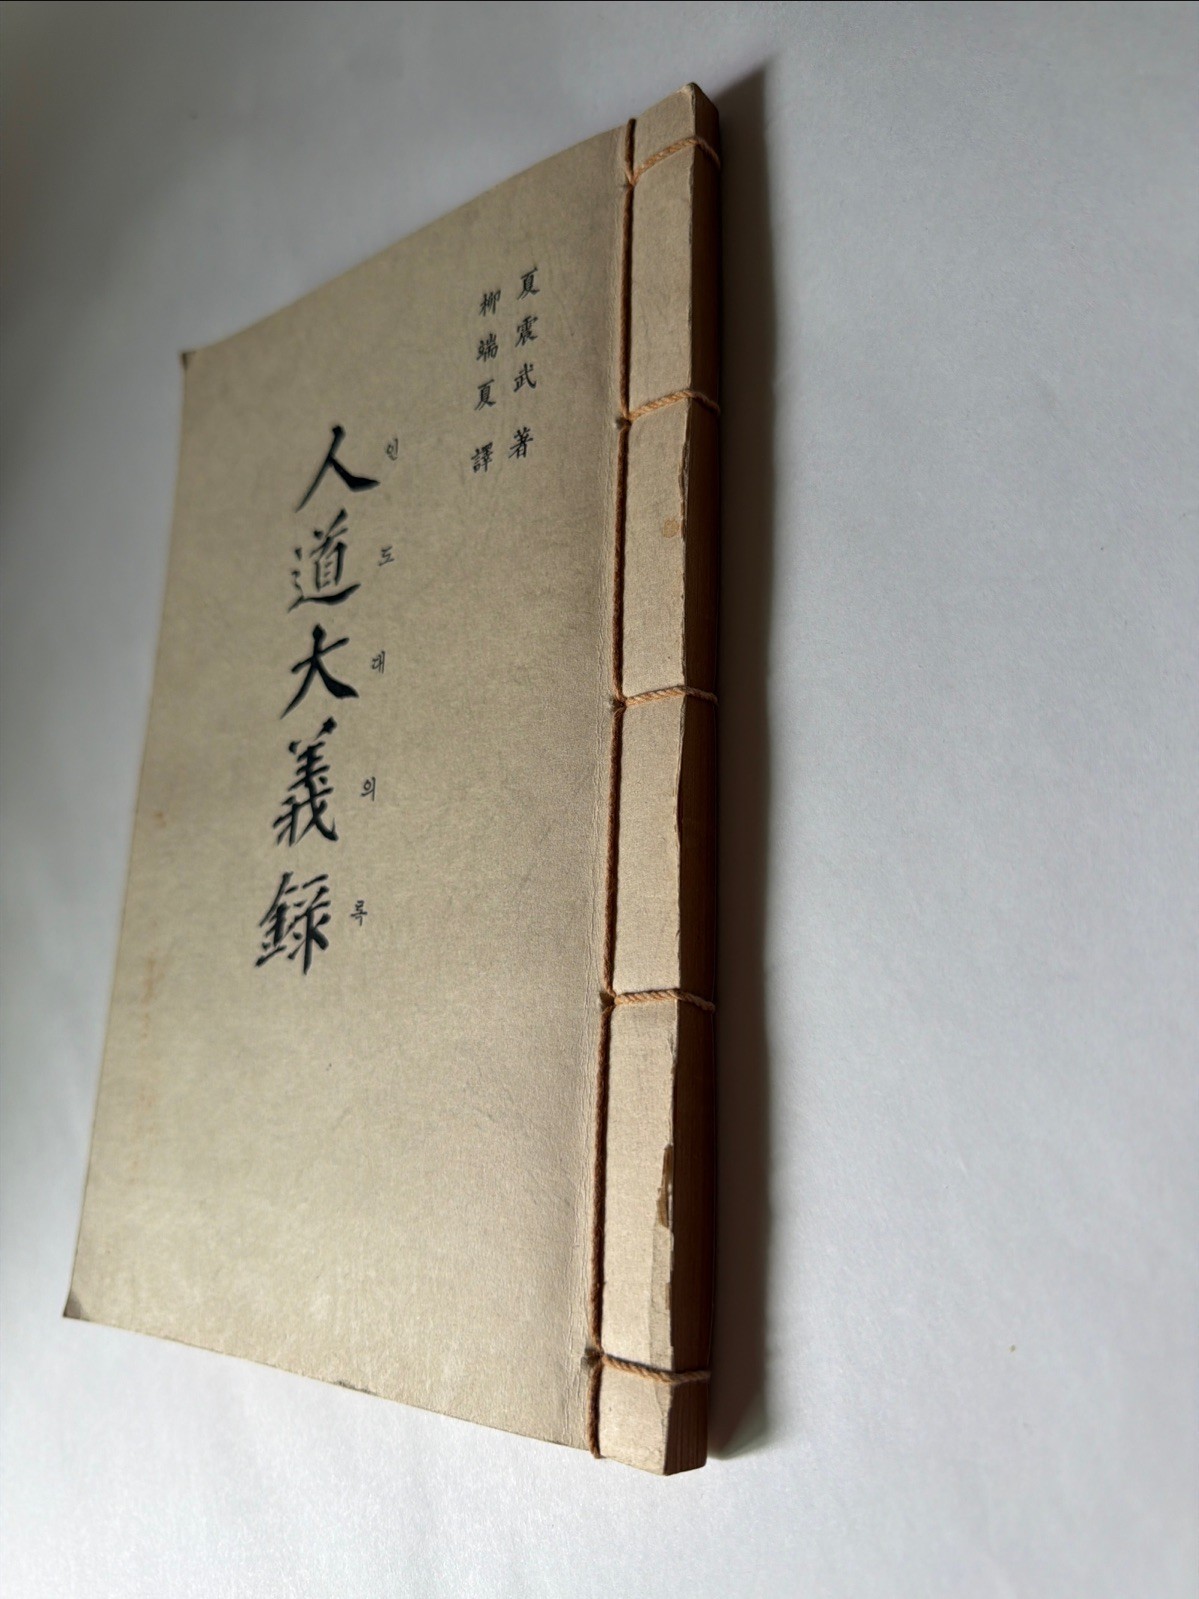 夏震武 著
柳端夏 譯
人道大義録
인도대의록